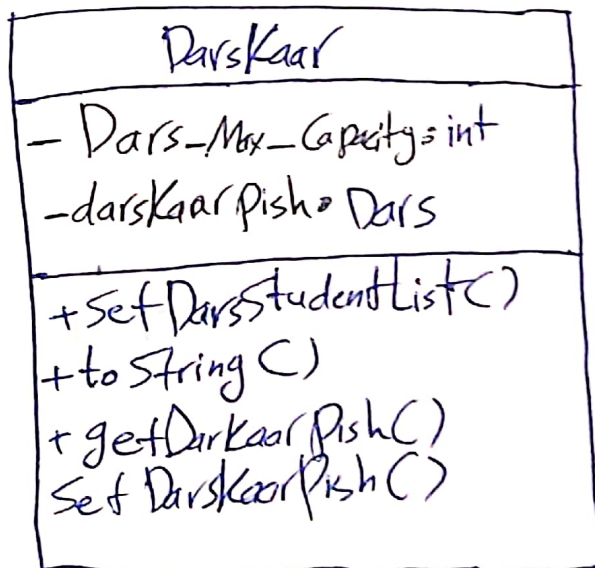 DarsKaar
- Dars_Max_Capacity: int
- darsKaarPish: Dars
+ SetDarsStudentList()
+ toString()
+ getDarKaarPish()
Set DarsKaarPish()